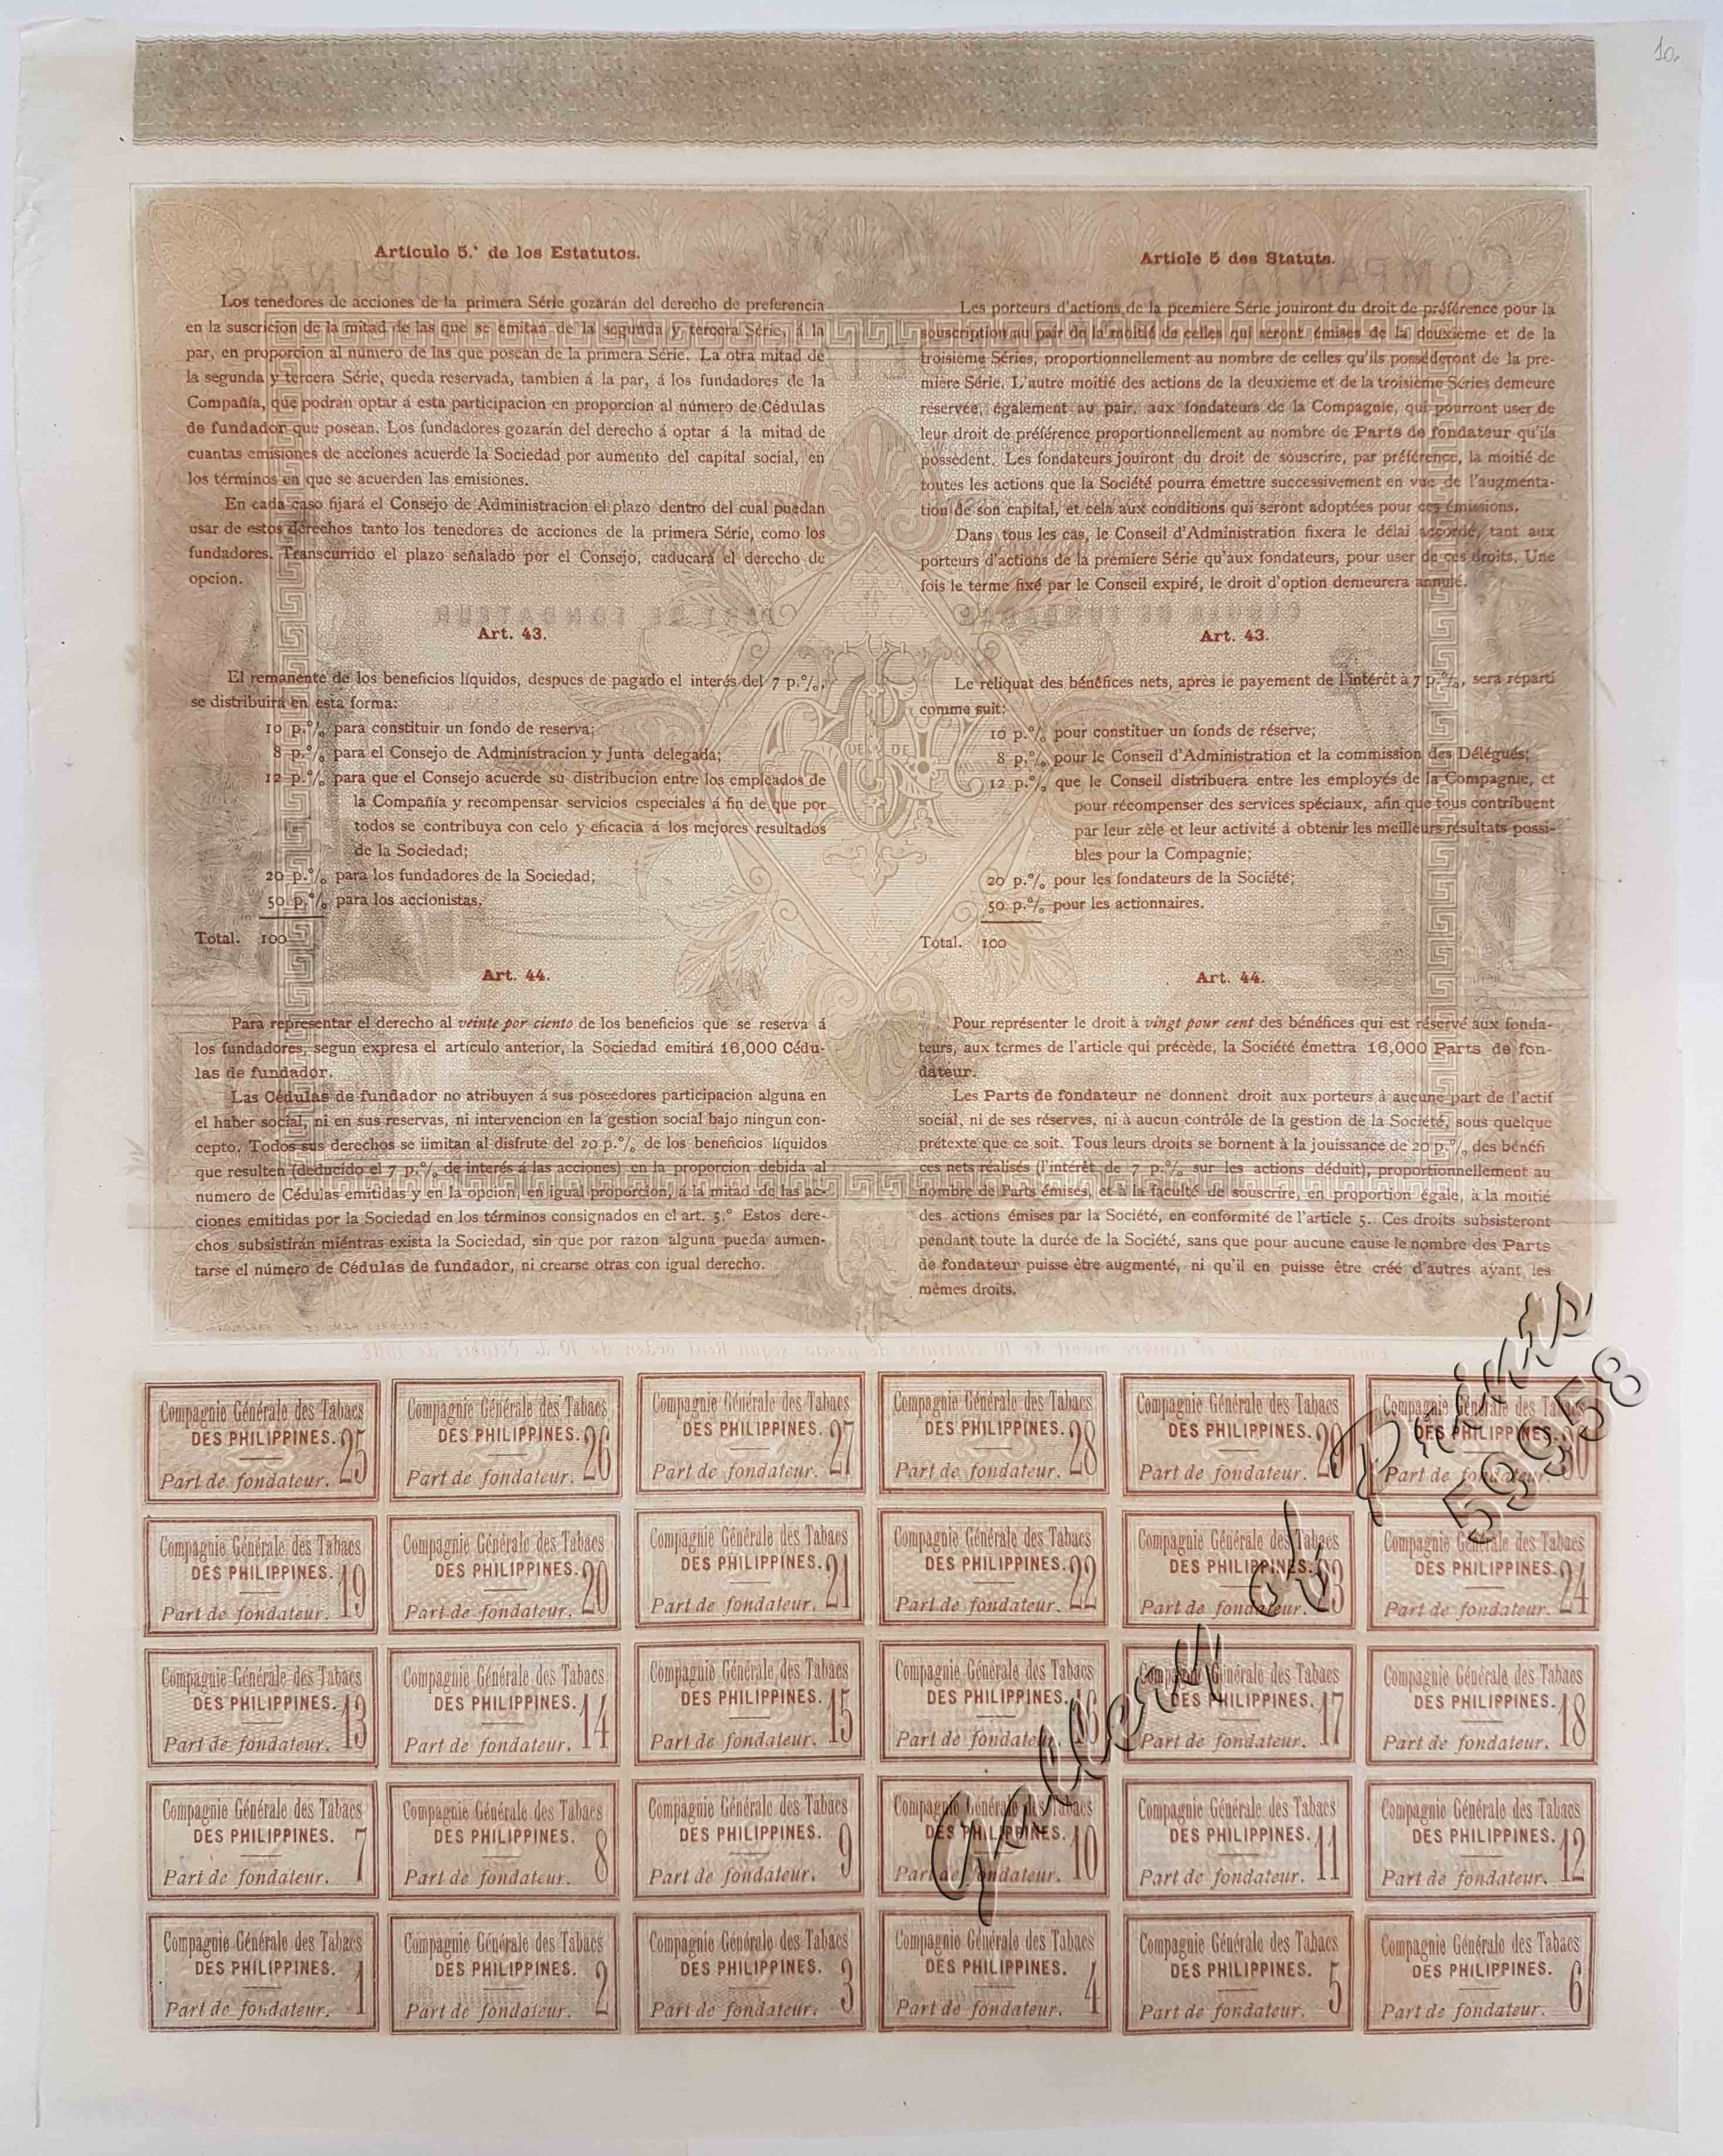 10.
Artículo 5.° de los Estatutos.
Los tenedores de acciones de la primera Série gozarán del derecho de preferencia
en la suscricion de la mitad de las que se emitan de la segunda y tercera Série, á la
par, en proporcion al número de las que posean de la primera Série. La otra mitad de
la segunda y tercera Série, queda reservada, tambien á la par, á los fundadores de la
Compañía, que podrán optar á esta participacion en proporcion al número de Cédulas
de fundador que posean. Los fundadores gozarán del derecho á optar á la mitad de
cuantas emisiones de acciones acuerde la Sociedad por aumento del capital social, en
los términos en que se acuerden las emisiones.
En cada caso fijará el Consejo de Administracion el plazo dentro del cual puedan
usar de estos derechos tanto los tenedores de acciones de la primera Série, como los
fundadores. Transcurrido el plazo señalado por el Consejo, caducará el derecho de
opcion.
Art. 43.
El remanente de los beneficios líquidos, despues de pagado el interés del 7 p.%,
se distribuirá en esta forma:
10 p.% para constituir un fondo de reserva;
8 p.% para el Consejo de Administracion y Junta delegada;
12 p.% para que el Consejo acuerde su distribucion entre los empleados de
la Compañía y recompensar servicios especiales á fin de que por
todos se contribuya con celo y eficacia á los mejores resultados
de la Sociedad;
20 p.% para los fundadores de la Sociedad;
50 p.% para los accionistas.
Total. 100
Art. 44.
Para representar el derecho al veinte por ciento de los beneficios que se reserva á
los fundadores, segun expresa el artículo anterior, la Sociedad emitirá 16,000 Cédu-
las de fundador.
Las Cédulas de fundador no atribuyen á sus poseedores participacion alguna en
el haber social, ni en sus reservas, ni intervencion en la gestion social bajo ningun con-
cepto. Todos sus derechos se limitan al disfrute del 20 p.% de los beneficios líquidos
que resulten (deducido el 7 p.% de interés á las acciones) en la proporcion debida al
número de Cédulas emitidas y en la opcion, en igual proporcion, á la mitad de las ac-
ciones emitidas por la Sociedad en los términos consignados en el art. 5.° Estos dere-
chos subsistirán miéntras exista la Sociedad, sin que por razon alguna pueda aumen-
tarse el número de Cédulas de fundador, ni crearse otras con igual derecho.
Article 5 des Statuts.
Les porteurs d'actions de la premiere Série jouiront du droit de préférence pour la
souscription au pair de la moitié de celles qui seront émises de la deuxième et de la
troisième Séries, proportionnellement au nombre de celles qu'ils posséderont de la pre-
mière Série. L'autre moitié des actions de la deuxième et de la troisième Séries demeure
réservée, également au pair, aux fondateurs de la Compagnie, qui pourront user de
leur droit de préférence proportionnellement au nombre de Parts de fondateur qu'ils
possèdent. Les fondateurs jouiront du droit de souscrire, par préférence, la moitié de
toutes les actions que la Société pourra émettre successivement en vue de l'augmenta-
tion de son capital, et cela aux conditions qui seront adoptées pour ces émissions.
Dans tous les cas, le Conseil d'Administration fixera le délai accordé, tant aux
porteurs d'actions de la première Série qu'aux fondateurs, pour user de ces droits. Une
fois le terme fixé par le Conseil expiré, le droit d'option demeurera annulé.
Art. 43.
Le reliquat des bénéfices nets, après le payement de l'intérêt à 7 p.%, sera réparti
comme suit:
10 p.% pour constituer un fonds de réserve;
8 p.% pour le Conseil d'Administration et la commission des Délégués;
12 p.% que le Conseil distribuera entre les employés de la Compagnie, et
pour récompenser des services spéciaux, afin que tous contribuent
par leur zèle et leur activité à obtenir les meilleurs résultats possi-
bles pour la Compagnie;
20 p.% pour les fondateurs de la Société;
50 p.% pour les actionnaires.
Total. 100
Art. 44.
Pour représenter le droit à vingt pour cent des bénéfices qui est réservé aux fonda-
teurs, aux termes de l'article qui précède, la Société émettra 16,000 Parts de fon-
dateur.
Les Parts de fondateur ne donnent droit aux porteurs à aucune part de l'actif
social, ni de ses réserves, ni à aucun contrôle de la gestion de la Société, sous quelque
prétexte que ce soit. Tous leurs droits se bornent à la jouissance de 20 p.% des bénéfi
ces nets réalisés (l'intérêt de 7 p.% sur les actions déduit), proportionnellement au
nombre de Parts émises, et à la faculté de souscrire, en proportion égale, à la moitié
des actions émises par la Société, en conformité de l'article 5. Ces droits subsisteront
pendant toute la durée de la Société, sans que pour aucune cause le nombre des Parts
de fondateur puisse être augmenté, ni qu'il en puisse être créé d'autres ayant les
mêmes droits.
Compagnie Générale des Tabacs
DES PHILIPPINES. 25
Part de fondateur.
Compagnie Générale des Tabacs
DES PHILIPPINES. 26
Part de fondateur.
Compagnie Générale des Tabacs
DES PHILIPPINES. 27
Part de fondateur.
Compagnie Générale des Tabacs
DES PHILIPPINES. 28
Part de fondateur.
Compagnie Générale des Tabacs
DES PHILIPPINES. 29
Part de fondateur.
Compagnie Générale des Tabacs
DES PHILIPPINES. 30
Part de fondateur.
Compagnie Générale des Tabacs
DES PHILIPPINES. 19
Part de fondateur.
Compagnie Générale des Tabacs
DES PHILIPPINES. 20
Part de fondateur.
Compagnie Générale des Tabacs
DES PHILIPPINES. 21
Part de fondateur.
Compagnie Générale des Tabacs
DES PHILIPPINES. 22
Part de fondateur.
Compagnie Générale des Tabacs
DES PHILIPPINES. 23
Part de fondateur.
Compagnie Générale des Tabacs
DES PHILIPPINES. 24
Part de fondateur.
Compagnie Générale des Tabacs
DES PHILIPPINES. 13
Part de fondateur.
Compagnie Générale des Tabacs
DES PHILIPPINES. 14
Part de fondateur.
Compagnie Générale des Tabacs
DES PHILIPPINES. 15
Part de fondateur.
Compagnie Générale des Tabacs
DES PHILIPPINES. 16
Part de fondateur.
Compagnie Générale des Tabacs
DES PHILIPPINES. 17
Part de fondateur.
Compagnie Générale des Tabacs
DES PHILIPPINES. 18
Part de fondateur.
Compagnie Générale des Tabacs
DES PHILIPPINES. 7
Part de fondateur.
Compagnie Générale des Tabacs
DES PHILIPPINES. 8
Part de fondateur.
Compagnie Générale des Tabacs
DES PHILIPPINES. 9
Part de fondateur.
Compagnie Générale des Tabacs
DES PHILIPPINES. 10
Part de fondateur.
Compagnie Générale des Tabacs
DES PHILIPPINES. 11
Part de fondateur.
Compagnie Générale des Tabacs
DES PHILIPPINES. 12
Part de fondateur.
Compagnie Générale des Tabacs
DES PHILIPPINES. 1
Part de fondateur.
Compagnie Générale des Tabacs
DES PHILIPPINES. 2
Part de fondateur.
Compagnie Générale des Tabacs
DES PHILIPPINES. 3
Part de fondateur.
Compagnie Générale des Tabacs
DES PHILIPPINES. 4
Part de fondateur.
Compagnie Générale des Tabacs
DES PHILIPPINES. 5
Part de fondateur.
Compagnie Générale des Tabacs
DES PHILIPPINES. 6
Part de fondateur.
Gallery of Prints
59958